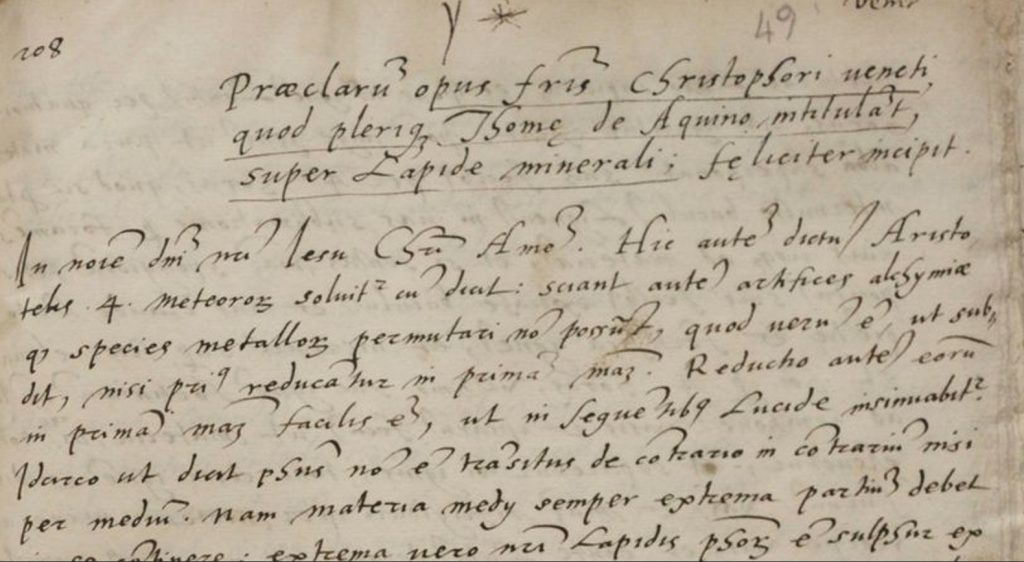 208
49
Præclarũ opus fris̃ Christophori veneti,
quod pleriq; Thomę de Aquino intitulãt,
super Lapide minerali; fęliciter incipit.
In noĩe dñi nrĩ Iesu Chrĩ Amẽ. Hic autẽ dictũ Aristo,
telis .4. Meteoroꝝ soluitᷣ cũ dicit: sciant autẽ artifices alchymiæ
ꝙ species metalloꝝ permutari nõ possũt, quod verũ ẽ, ut sub,,
dit, nisi priꝰ reducãtur in primã maꝫ. Reductio autẽ eorũ
in primã maꝫ facilis ẽ, ut in sequẽtibꝰ Lucide insinuabitᷣ
Idcirco ut dicit phũs nõ ẽ trãsitus de cõtrario in cõtrariũ nisi
per mediũ. Nam materia medij semper extrema partiũ debet
in se cõtinere: extrema vero nrĩ Lapidis phõꝝ ẽ sulphur ex